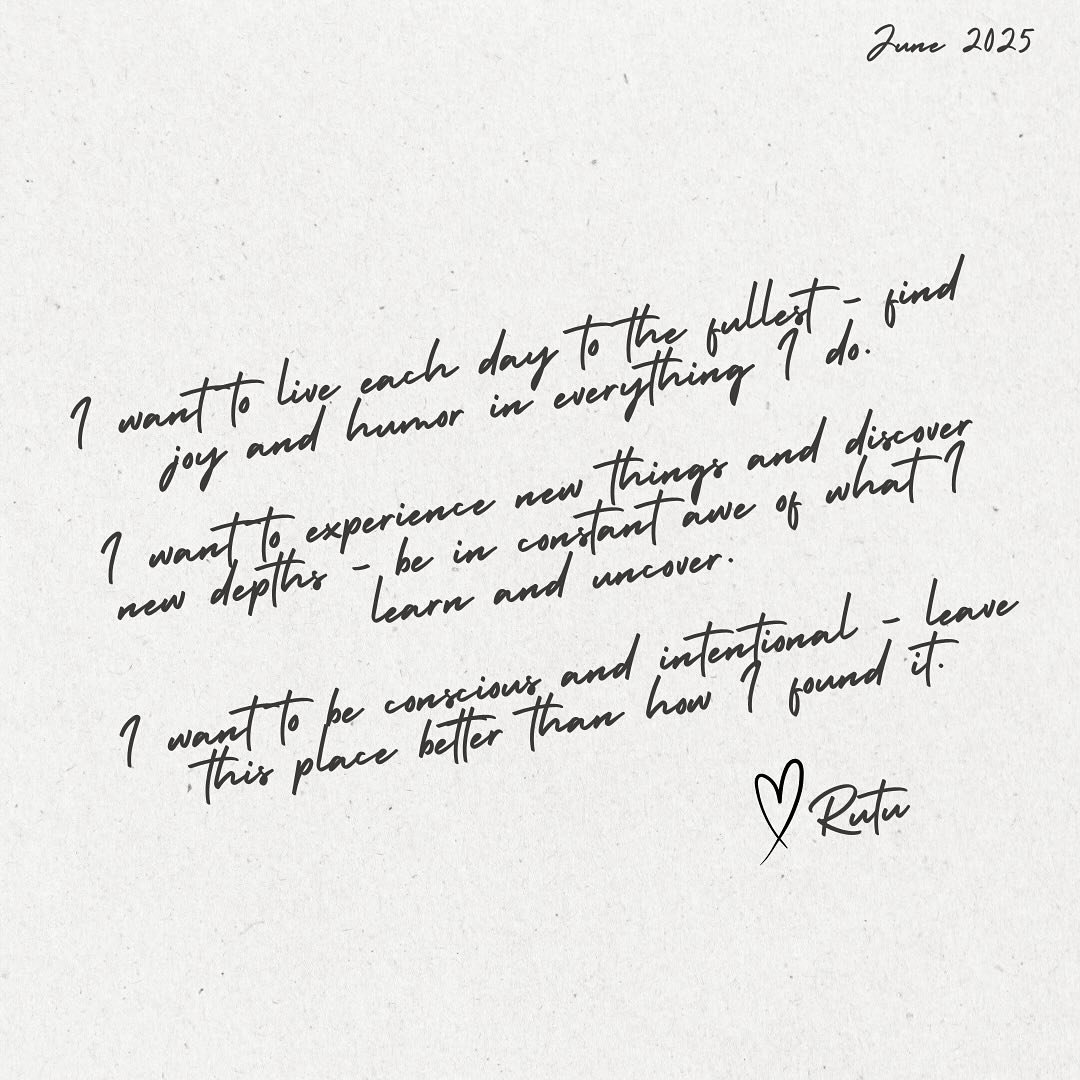 June 2025
I want to live each day to the fullest - find
joy and humor in everything I do.
I want to experience new things and discover
new depths - be in constant awe of what I
learn and uncover.
I want to be conscious and intentional - leave
this place better than how I found it.
Rutu